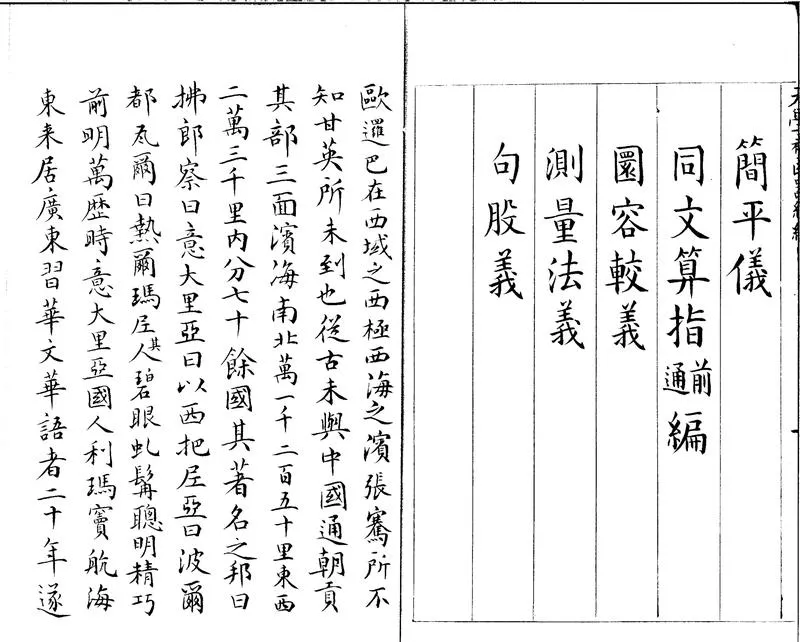 簡平儀
同文算指前通編
圜容較義
測量法義
句股義
歐邏巴在西域之西極西海之濱張騫所不
知甘英所未到也從古未與中國通朝貢
其部三面濱海南北萬一千二百五十里東西
二萬三千里内分七十餘國其著名之邦曰
拂郎察曰意大里亞曰以西把尼亞曰波爾
都瓦爾曰熱爾瑪尼其人碧眼虬髯聰明精巧
前明萬歷時意大里亞國人利瑪竇航海
東来居廣東習華文華語者二十年遂